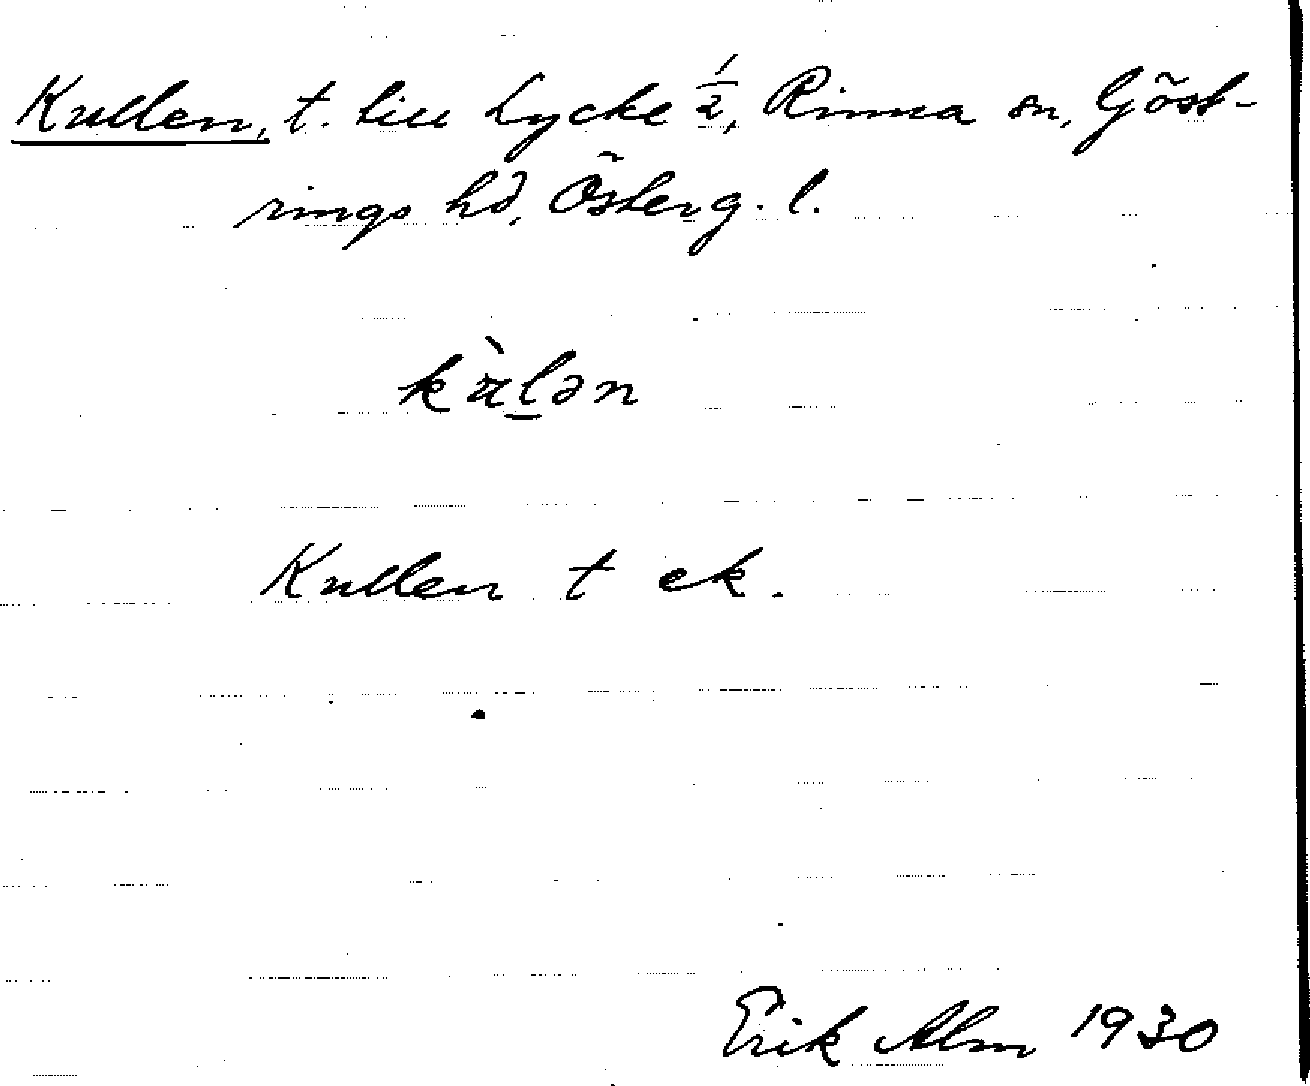 Kullen, t. till Lycke 1/2, Rinna sn, Göst-
rings hd, Österg. l.
kùl̠ən
Kullen t ek.
Erik Alm 1930